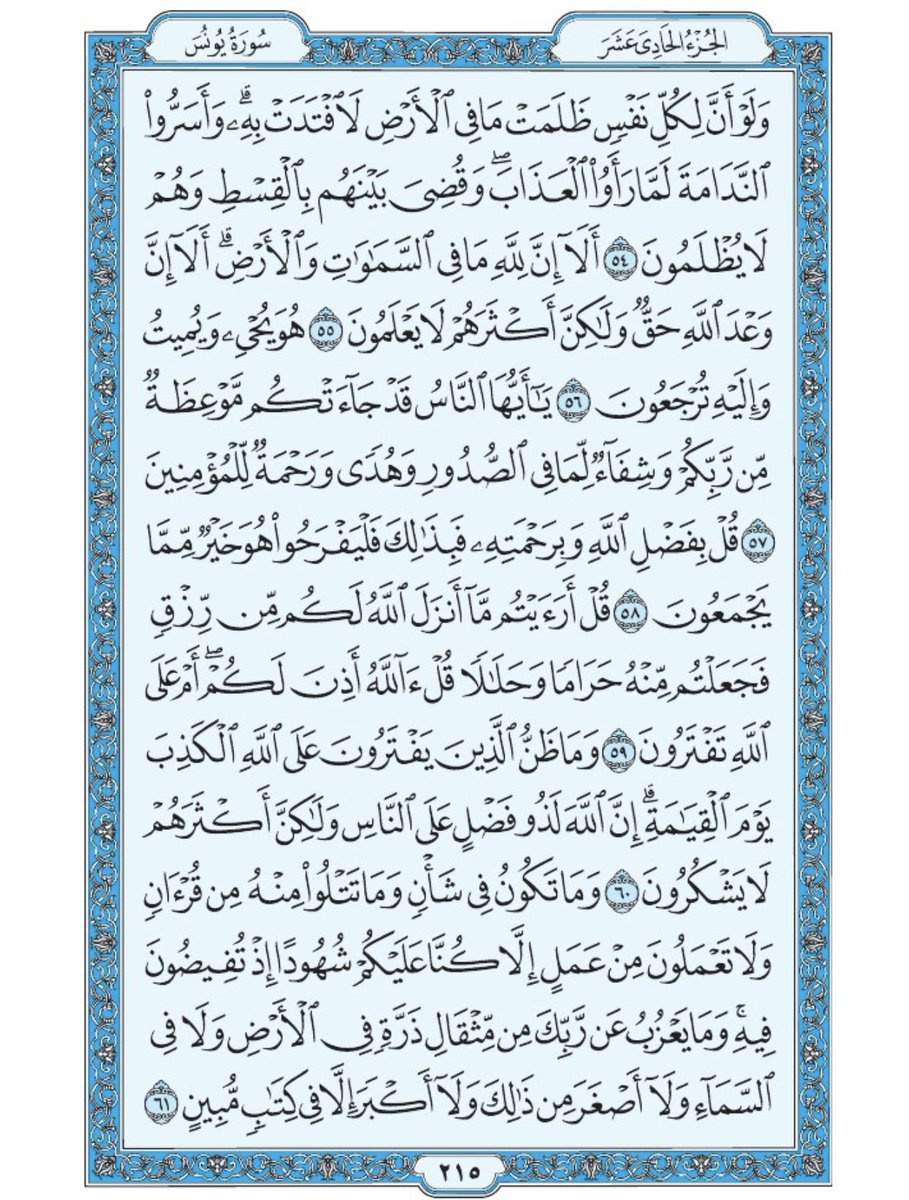 الجُزْءُ الحَادِى عَشَرَ
سُورَةُ يُونُسَ
وَلَوْ أَنَّ لِكُلِّ نَفْسٖ ظَلَمَتْ مَا فِى ٱلْأَرْضِ لَٱفْتَدَتْ بِهِۦۗ وَأَسَرُّواْ
ٱلنَّدَامَةَ لَمَّا رَأَوُاْ ٱلْعَذَابَۖ وَقُضِىَ بَيْنَهُم بِٱلْقِسْطِ وَهُمْ
لَا يُظْلَمُونَ ٥٤ أَلَآ إِنَّ لِلَّهِ مَا فِى ٱلسَّمَٰوَٰتِ وَٱلْأَرْضِۗ أَلَآ إِنَّ
وَعْدَ ٱللَّهِ حَقّٞ وَلَٰكِنَّ أَكْثَرَهُمْ لَا يَعْلَمُونَ ٥٥ هُوَ يُحْىِۦ وَيُمِيتُ
وَإِلَيْهِ تُرْجَعُونَ ٥٦ يَٰٓأَيُّهَا ٱلنَّاسُ قَدْ جَآءَتْكُم مَّوْعِظَةٞ
مِّن رَّبِّكُمْ وَشِفَآءٞ لِّمَا فِى ٱلصُّدُورِ وَهُدٗى وَرَحْمَةٞ لِّلْمُؤْمِنِينَ
٥٧ قُلْ بِفَضْلِ ٱللَّهِ وَبِرَحْمَتِهِۦ فَبِذَٰلِكَ فَلْيَفْرَحُواْ هُوَ خَيْرٞ مِّمَّا
يَجْمَعُونَ ٥٨ قُلْ أَرَءَيْتُم مَّآ أَنزَلَ ٱللَّهُ لَكُم مِّن رِّزْقٖ
فَجَعَلْتُم مِّنْهُ حَرَامٗا وَحَلَٰلٗا قُلْ ءَآللَّهُ أَذِنَ لَكُمْۖ أَمْ عَلَى
ٱللَّهِ تَفْتَرُونَ ٥٩ وَمَا ظَنُّ ٱلَّذِينَ يَفْتَرُونَ عَلَى ٱللَّهِ ٱلْكَذِبَ
يَوْمَ ٱلْقِيَٰمَةِۗ إِنَّ ٱللَّهَ لَذُو فَضْلٍ عَلَى ٱلنَّاسِ وَلَٰكِنَّ أَكْثَرَهُمْ
لَا يَشْكُرُونَ ٦٠ وَمَا تَكُونُ فِى شَأْنٖ وَمَا تَتْلُواْ مِنْهُ مِن قُرْءَانٖ
وَلَا تَعْمَلُونَ مِنْ عَمَلٍ إِلَّا كُنَّا عَلَيْكُمْ شُهُودًا إِذْ تُفِيضُونَ
فِيهِۚ وَمَا يَعْزُبُ عَن رَّبِّكَ مِن مِّثْقَالِ ذَرَّةٖ فِى ٱلْأَرْضِ وَلَا فِى
ٱلسَّمَآءِ وَلَآ أَصْغَرَ مِن ذَٰلِكَ وَلَآ أَكْبَرَ إِلَّا فِى كِتَٰبٖ مُّبِينٍ ٦١
٢١٥